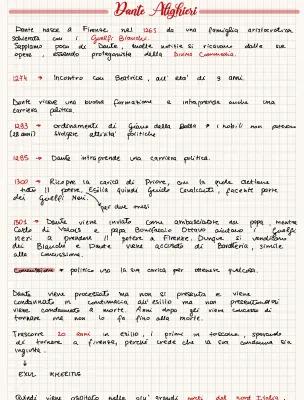 Dante Alighieri
Dante nasce a Firenze nel 1265 da una famiglia aristocratica
schierata con i Guelfi Bianchi.
Sappiamo poco di Dante, molte notizie si ricavano dalle sue
opere, essendo protagonista della Divina Commedia.
1274 → Incontro con Beatrice, all'età di 9 anni.
Dante riceve una buona formazione e intraprende anche una
carriera politica.
1293 → ordinamenti di Giano della Bella → i nobili non potevano
svolgere attività politiche
1295 → Dante intraprende una carriera politica.
1300 → Ricopre la carica di Priore, con la quale detiene
tutto il potere. Esilia quindi Guido Cavalcanti, facente parte
dei Guelfi Neri
per due mesi
1301 → Dante viene inviato come ambasciatore dal papa, mentre
Carlo di Valois e papa Bonifacio Ottavo aiutano i Guelfi
Neri a prendere il potere a Firenze. Dunque si vendicano
dei Bianchi e Dante viene accusato di Baratteria, simile
alla concussione.
Concussione → politico usa la sua carica per ottenere qualcosa.
Dante viene processato ma non si presenta e viene
condannato in contumacia all'esilio ma non presentandosi
viene condannato a morte. Anni dopo gli viene concesso di
tornare ma non lo fa fino alla morte.
Trascorre 20 anni in esilio, i primi in toscana, sperando
di tornare a firenze, perché crede che la sua condanna sia
ingiusta.
↓
EXUL IMMERITUS
Quindi viene ospitato nelle più grandi corti del nord Italia,